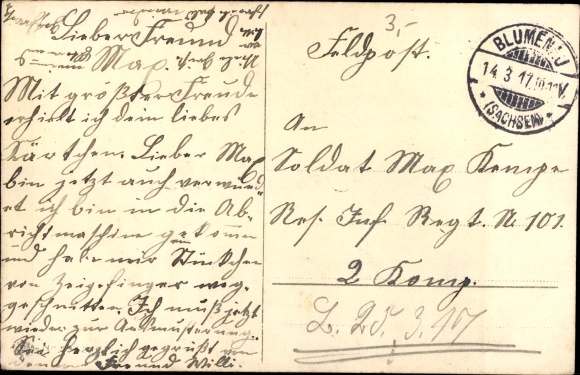 Lieber Freund
Max.
Mit großter Freude
erhielt ich dein liebes
Kärtchen. Lieber Max
bin jetzt auch verwund-
et ich bin in die Ab-
richtmaschine gekomm
und habe mir Stückchen
von Zeigefinger weg-
geschnitten. Ich muß jetzt
wieder zur Ausmusterung.
Sei herzlich gegrüßt von
deinem Freund Willi.
3,-
Feldpost.
BLUMENAU
14.3.17.10-11V.
*(SACHSEN)*
An
Soldat Max Kempe
Res. Inf. Regt. N. 101.
2 Komp.
25.3.17